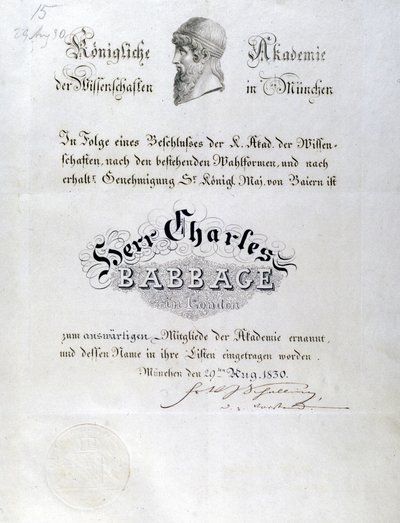 15
29 Aug 30
Königliche Akademie
der Wissenschaften in München
In Folge eines Beschlusses der K. Akad. der Wissen-
schaften, nach den bestehenden Wahlformen, und nach
erhalt.r Genehmigung Sr. Königl. Maj. von Baiern ist
Herr Charles
BABBAGE
in London
zum auswärtigen Mitgliede der Akademie ernannt,
und dessen Name in ihre Listen eingetragen worden.
München den 29ten Aug. 1830.
Schelling